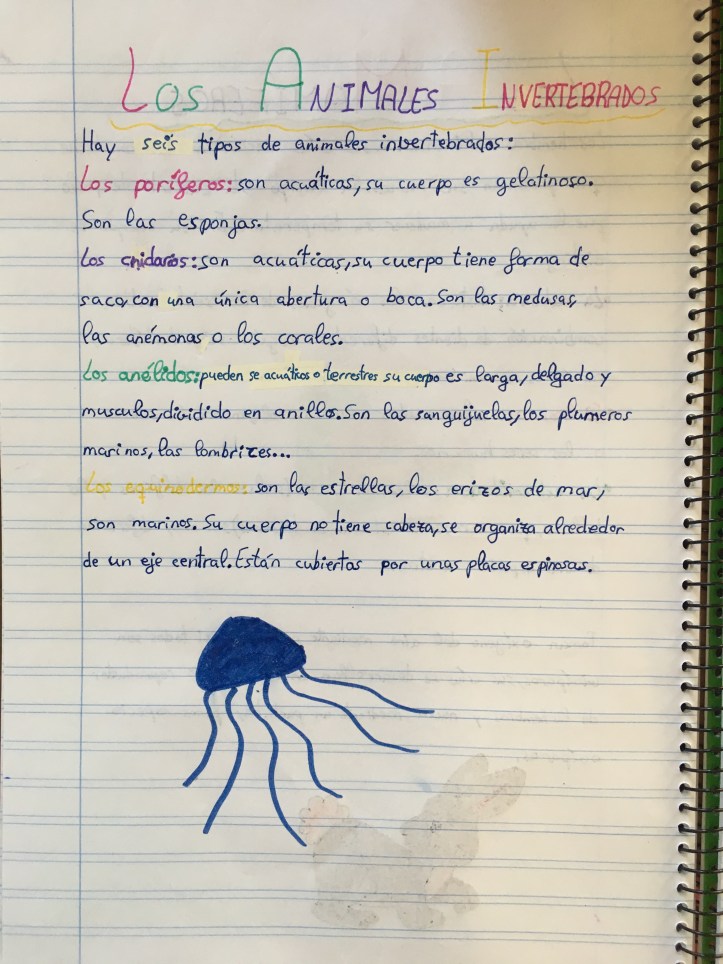 LOS ANIMALES INVERTEBRADOS
Hay seis tipos de animales invertebrados:
Los poríferos: son acuáticas, su cuerpo es gelatinoso.
Son las esponjas.
Los cnidarios: son acuáticas, su cuerpo tiene forma de
saco, con una única abertura o boca. Son las medusas,
las anémonas o los corales.
Los anélidos: pueden se acuáticos o terrestres su cuerpo es larga, delgado y
musculos, dividido en anillos. Son las sanguijuelas, los plumeros
marinos, las lombrices...
Los equinodermos: son las estrellas, los erizos de mar,
son marinos. Su cuerpo no tiene cabeza, se organiza alrededor
de un eje central. Están cubiertas por unas placas espinosas.